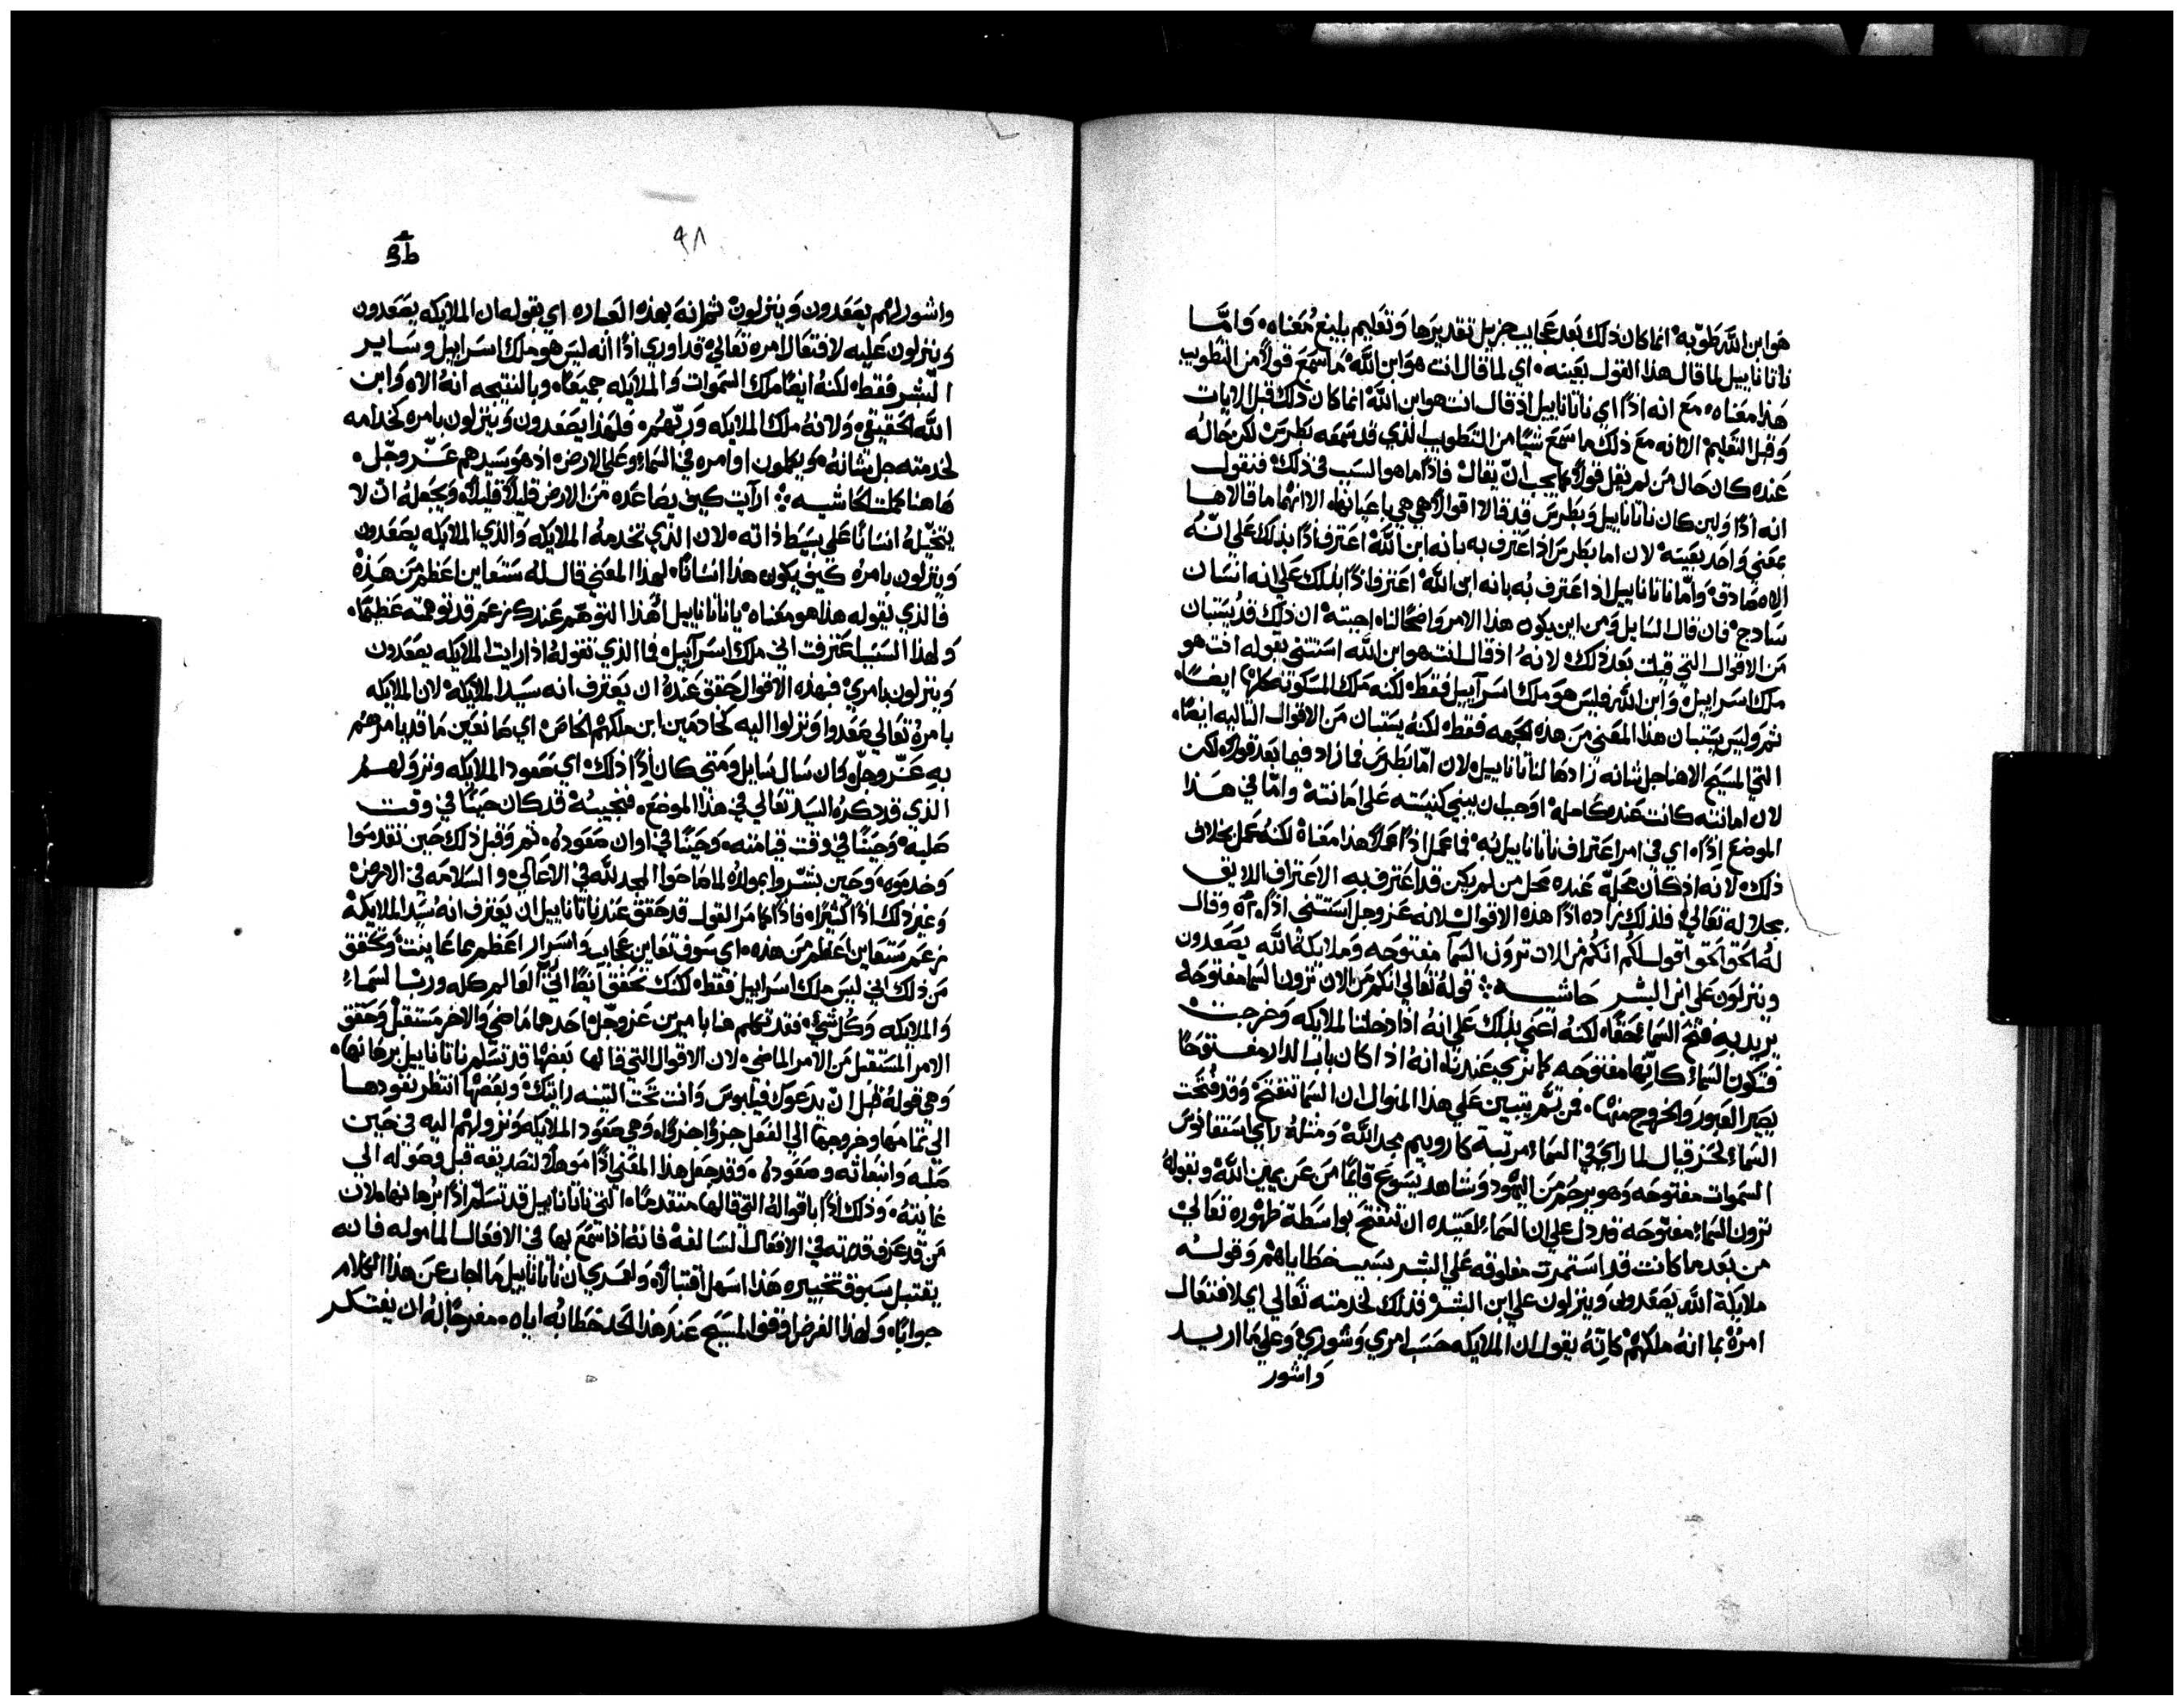 هو ابن الله طوبه انما كان ذلك بعد عجايب جزيل تقديرها وتعليم بليغ معناه وامّا
ناتانا ييل لما قال هذا القول بعينه اي لما قال انت هو ابن الله ما سمع قولاً من التطويب
هذا معناه مع انه اذًا اي ناتانا ييل اذ قال انت هو ابن الله انما كان ذلك قبل الايات
وقبل التعليم الا انه مع ذلك ما سمع شيًا من التطويب الذي قد سمعه بطرس لكن حاله
عنده كان حال من لم يقل قولاً كما يجب ان يقال فاذًا ما هو السبب في ذلك فنقول
انه اذًا ولين كان ناتانا ييل وبطرس قد قالا اقوالاً هي هي باعيانها الا انهما ما قالاها
بمعني واحد بعينه لان اما بطرس اذ اعترف به بانه ابن الله اعترف اذًا بذلك علي انّه
الاه صادق وامّا ناتانا ييل اذ اعترف به بانه ابن الله اعترف اذًا بذلك علي انه انسان
سادج فان قال السايل ومن اين يكون هذا الامر واضحًا لنا اجبته ان ذلك قد يستبان
من الاقوال التي قيلت بعد ذلك لانه اذ قال انت هو ابن الله استثني بقوله انت هو
ملك اسراييل وابن الله فليس هو ملك اسرآييل فقط لكنه ملك المسكونه كلها ايضًا
ثم وليس يستبان هذا المعني من هذه الجهه فقط لكنه يستبان من الاقوال التاليه ايضًا
التي المسيح الاهنا جل شانه زادها لناتانا ييل لان امّا بطرس فما زاد فيما بعد قوله لكن
لان امانته كانت عنده كامله اوجب ان يبني كنيسته علي امانته وامّا في هذا
الموضع اذًا اي في امر اعتراف ناتانا ييل به فما عمل اذًا عملاً هذا معناه لكنه عمل بخلاف
ذلك لانه اذ كان محلّه عنده محل من لم يكن قد اعترف به الاعتراف اللايق
بجلاله تعالي فلذلك زاده اذًا هذه الاقوال لانه عز وجل استثني اذًا وقال
له الحق الحق اقول لكم انكم من الان ترون السما مفتوحه وملايكة الله يصعدون
وينزلون علي ابن البشر حاشيه قوله تعالي انكم من الان ترون السما مفتوحه
يريد به فتح السماء حقًا لكنه اعني بذلك علي انه اذا دخلت الملايكه وخرجت
فتكون السماء كانّها مفتوحه كما نري عندنا انه اذا كان باب الدار مفتوحًا
يصير العبور والخروج منها فمن ثم يتبين علي هذا المنوال ان السما تنفتح وقد فُتحت
السماء لحزقيال لما راي في السماء مركبة كاروبيم مجد الله ومثله راي استفانوس
السموات مفتوحه وهو يرجم من اليهود وشاهد يسوع قايمًا من عن يمين الله وبقوله
ترون السماء مفتوحه قد دل علي ان السماء لعتيده ان تنفتح بواسطة ظهوره تعالي
من بعد ما كانت قد استمرت مغلوقه علي البشر بسبب خطاياهم وقوله
ملايكة الله يصعدون وينزلون علي ابن البشر فذلك لخدمته تعالي اي لافتعال
امره بما انه ملكهم كانّه يقول ان الملايكه حسب امري وشوري وعلي ما اريد
واشور
٩٨
واشور لهم يصعدون وينزلون ثم انه بهذه العباره اي بقوله ان الملايكه يصعدون
وينزلون عليه لافتعال امره تعالي قد اوري اذًا انه ليس هو ملك اسراييل وساير
البشر فقط لكنه ايضًا ملك السموات والملايكه جميعًا وبالنتيجه انه الاه وابن
الله الحقيقي ولانه ملك الملايكه وربّهم فلهذا يصعدون وينزلون بامره كخدامه
لخدمته جل شانه ويكملون اوامره في السماء وعلي الارض اذ هو سيدهم عزّ وجل
هاهنا كملت الحاشيه ارآيت كيف يصاعده من الارض قليلاً قليلاً ويجعله ان لا
يتخيّله انسانًا علي بسيط ذاته لان الذي تخدمه الملايكه والذي الملايكه يصعدون
وينزلون بامره كيف يكون هذا انسانًا لهذا المعني قال له ستعاين اعظم من هذه
فالذي يقوله هذا هو معناه يا ناتانا ييل أهذا التوهّم عندك زعم قد توهمته عظيمًا
ولهذا السبب اعترفت اني ملك اسرآييل فما الذي تقوله اذا رايت الملايكه يصعدون
وينزلون بامري فبهذه الاقوال حقق عنده ان يعترف انه سيد الملايكه لان الملايكه
بامره تعالي صعدوا ونزلوا اليه كخادمين ابن ملكهم الخاص اي صانعين ما قد يامرهم
به عزّ وجل وان سال سايل ومتي كان اذًا ذلك اي صعود الملايكه ونزولهم
الذي قد ذكره السيد تعالي في هذا الموضع فنجيبه قد كان حينًا في وقت
صلبه وحينًا في وقت قيامته وحينًا في اوان صعوده ثم وقبل ذلك حين تقدموا
وخدموه وحين بشّروا بمولده لما صاحوا المجد لله في الاعالي والسلامه في الارض
وغير ذلك اذًا كثيرًا فاذًا كما مر القول قد حقق عند ناتانا ييل ان يعترف انه سيد الملايكة
زعم ستعاين اعظم من هذه اي سوف تعاين عجايب واسرار اعظم مما عاينت وتحقق
من ذلك اني ليس ملك اسراييل فقط لكنك تحقق ايضًا اني العالم كله ورب السماء
والملايكه وكل شيء فقد تكلم هنا بامرين عز وجل احدهما ماضي والاخر مستقبل وحقق
الامر المستقبل من الامر الماضي لان الاقوال التي قالها بعضها قد تسلم ناتانا ييل برهانها
وهي قوله قبل ان يدعوك فيلبوس وانت تحت التينه رايتك وبعضها انتظر نفوذها
الي تمامها وخروجها الي الفعل جزءًا جزءًا وهي صعود الملايكه ونزولهم اليه في حين
صلبه وانبعاثه وصعوده وقد جعل هذا المعني اذًا موهلاً لتصديقه قبل وصوله الي
غايته وذلك اذًا باقواله التي قالها متقدمًا التي ناتانا ييل قد تسلّم اذًا برهانها لان
من قد عرف قدرته في الافعال السالفة فانه اذا سمع بها في الافعال المامولة فانه
يقتبل سبوق تخبيره هذا اسهل اقتبالاً ولعمري ان ناتانا ييل ما اجاب عن هذا الكلام
جوابًا ولهذا الغرض اوقف المسيح عند هذا الحد خطابه اياه مفرحًا له ان يفتكر